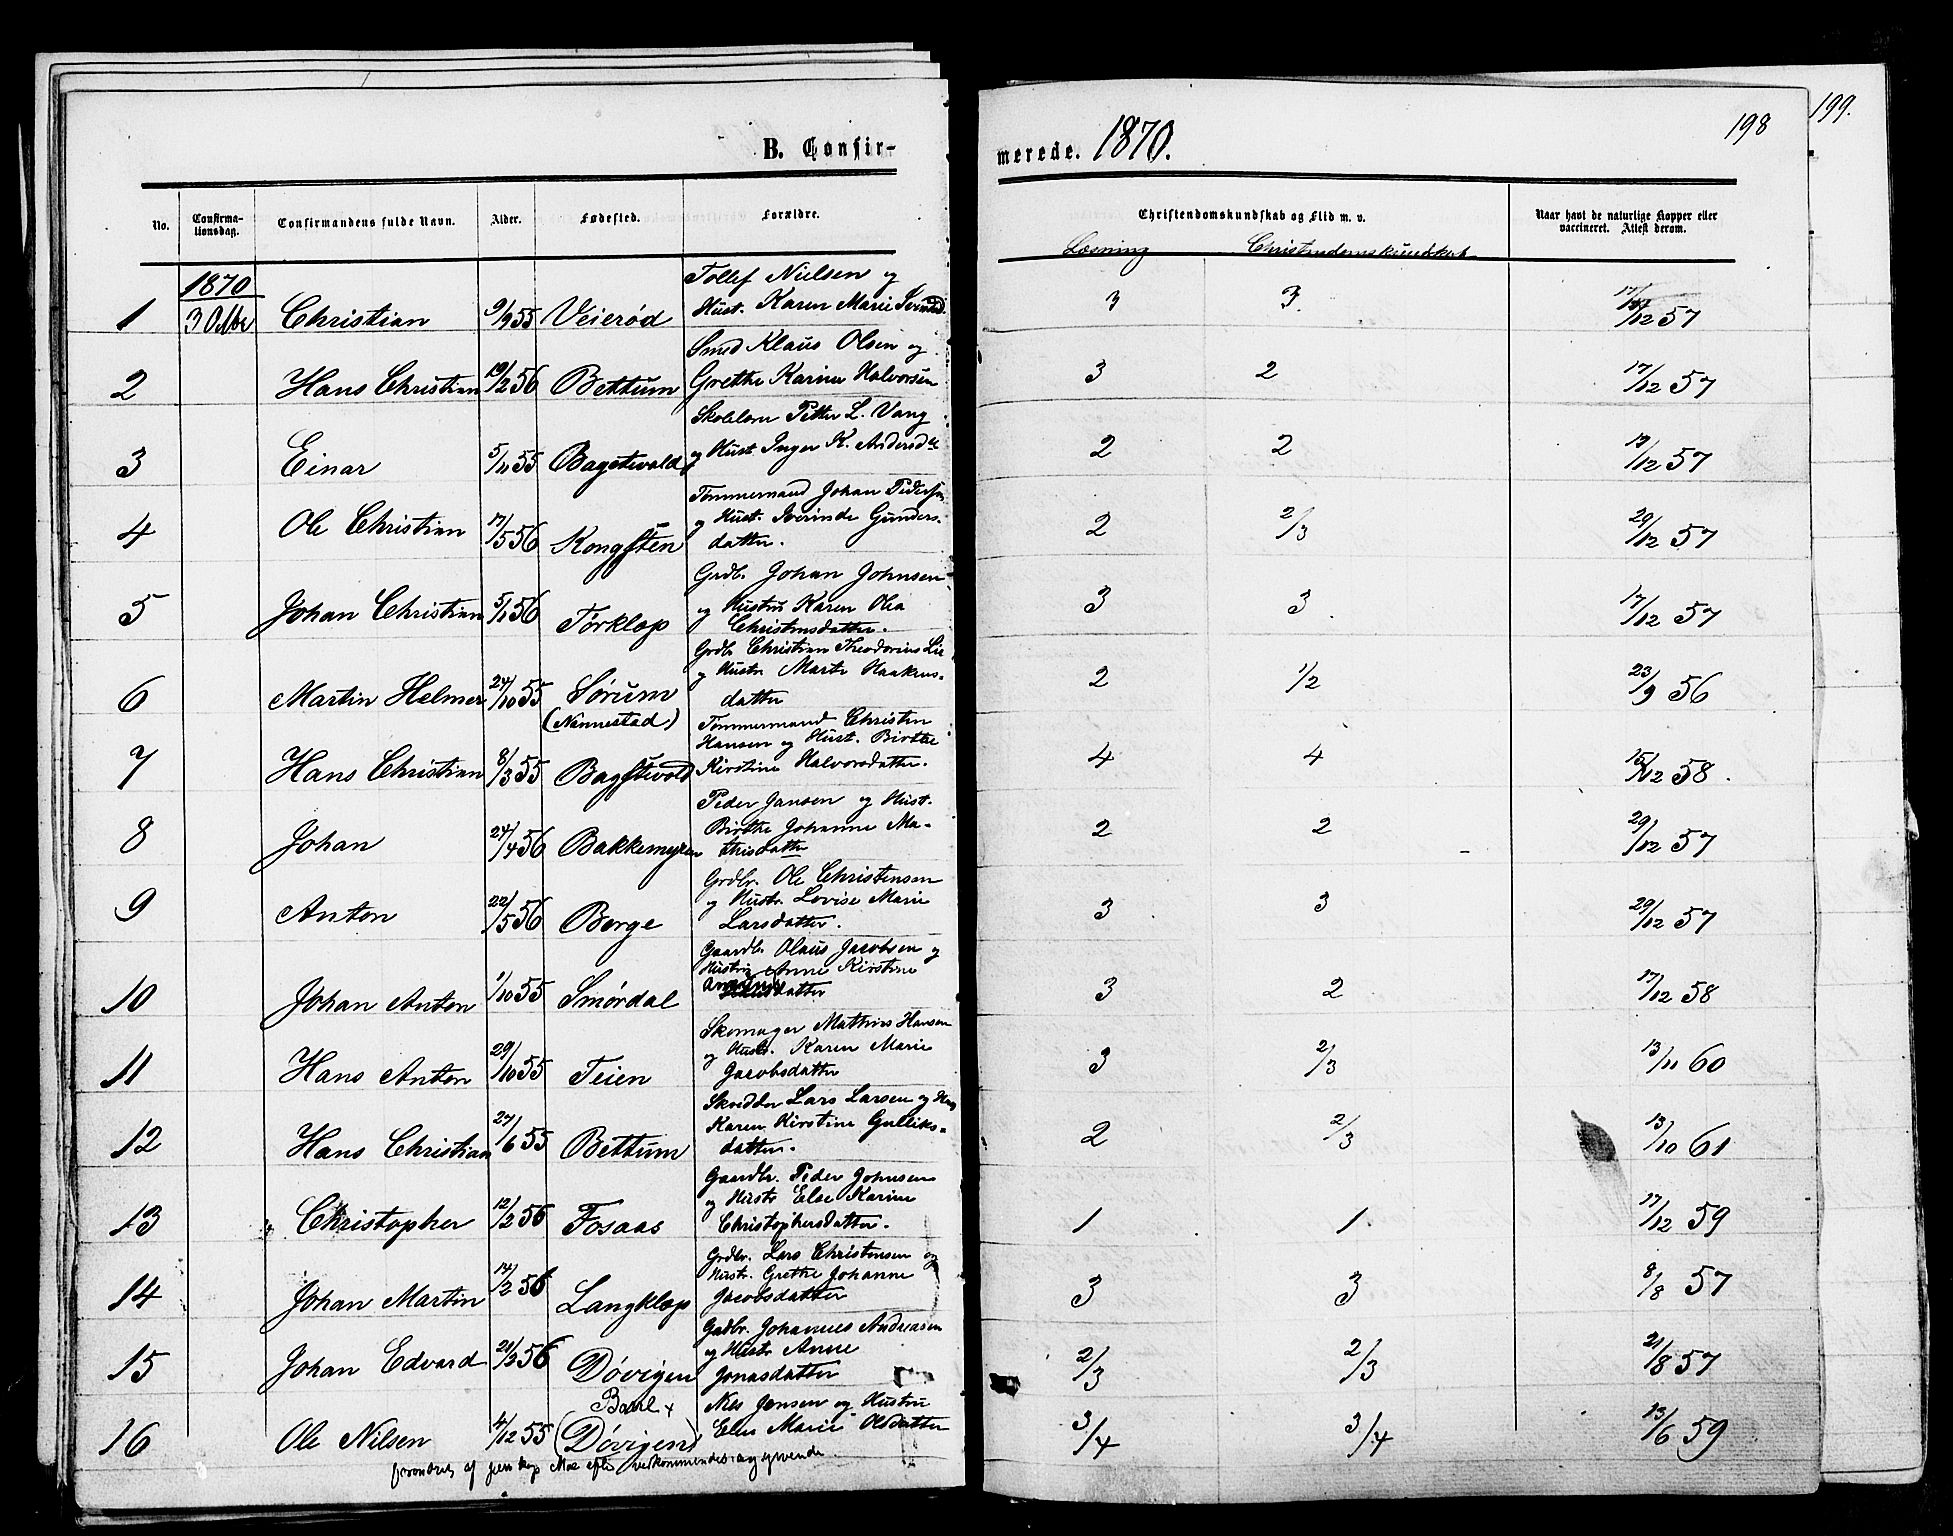 B. Confir-
merede. 1870.
198
199.
No.
Confirma-
tionsdag.
Confirmandens fulde Navn.
Alder.
Fødested.
Forældre.
Christendomskundskab og Flid m. v.
Naar havt de naturlige Kopper eller
vaccineret. Attest derom.
Læsning Christendomskundskab
1870
Tollef Nielsen og
1 3 Octbr Christian 9/9 55 Veierød Hust. Karen Marie 3 3 17/12 57
Smed Klaus Olsen og
2 Hans Christian 19/2 56 Bettum Grethe Karine Halvorsen 3 2 17/12 57
Skolelær Petter L. Vang
3 Einar 5/11 55 Bagstevold og Hust. Inger K. Andersdtr 2 2 19/12 57
Tømmermand Johan Pedersen
4 Ole Christian 17/5 56 Kongsten og Hust. Iverinde Gunders-
datter. 2 2/3 29/12 57
Grdbr. Johan Johnsen
5 Johan Christian 5/1 56 Tørklop og Hustru Karen Olea
Christensdatter. 3 3 17/12 57
Grdbr Christian Theodorius Lie
6 Martin Helmer 24/10 55 Sørum og Hustr Marte Haakens-
(Nannestad) datter 2 1/2 23/9 56
Tømmermand Christen
Hansen og Hust. Birthe
7 Hans Christian 8/3 55 Bagstevold Kirstine Halvorsdatter. 4 4 15/12 58.
Peder Jansen og Hust.
8 Johan 24/4 56 Bakkemyren Birthe Johanne Ma-
thisdatter 2 2 29/12 57
Grdbr. Ole Christensen
9 Anton 22/5 56 Berge og Hustr Lovise Marie
Larsdatter. 3 3 29/12 57
Gaardbr. Olaus Jacobsen og
Hustru Anne Kirstine
10 Johan Anton 1/10 55 Smørdal datter 3 2 17/12 58
Skomager Mathias Hansen
11 Hans Anton 29/10 55 Teien og Hustr. Karen Marie
Jacobsdatter 3 2/3 13/11 60
Skredder Lars Larsen og Hus
12 Hans Christian 27/6 55 Bettum Karen Kirstine Gulliks-
datter. 2 2/3 13/10 61
Gaardbr. Peder Johnsen
13 Christopher 12/2 56 Fosaas og Hustr Else Karine
Christophersdatter. 1 1 17/12 59
Grdbr. Lars Christensen og
14 Johan Martin 14/2 56 Langklop Hustr. Grethe Johanne
Jacobsdatter 3 3 8/8 57
Gadbr. Johannes Andreasen
15 Johan Edvard 21/2 56 Døvigen og Hustr Anne
Jonasdatter 2/3 2/3 21/8 57
Nes Jensen og Hustru
16 Ole Nilsen 4/12 55 (Døvigen) Elen Marie Olsdatter 3/4 3/4 13/6 59
af efter vedkommendes